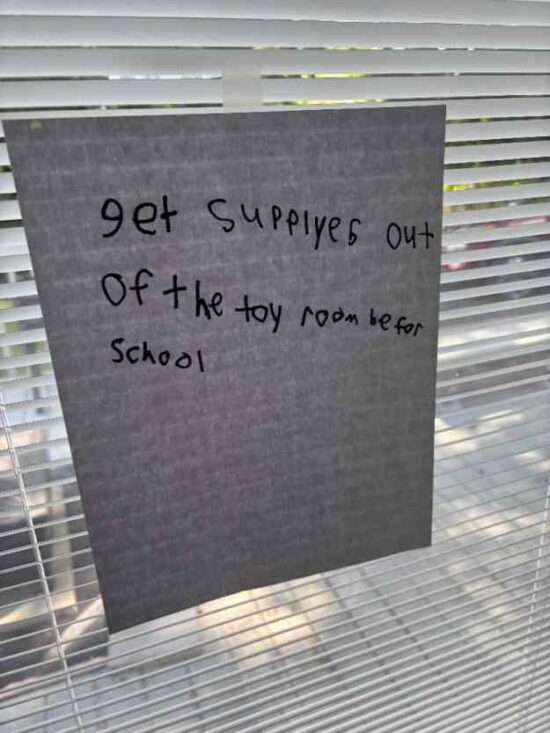 get supplyes out
of the toy room befor
school